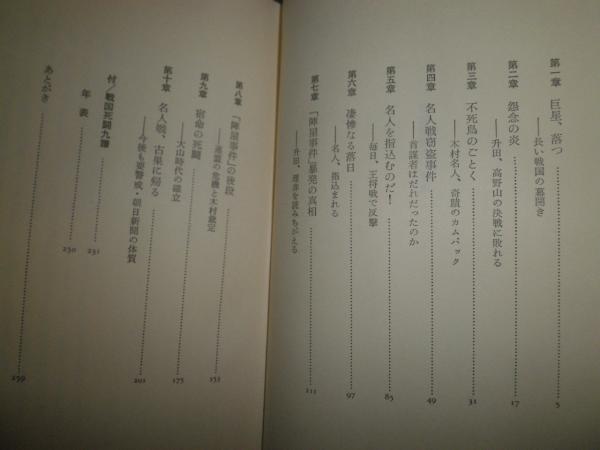 第一章　巨星、落つ
――長い戦国の幕開き
5
第二章　怨念の炎
――升田、高野山の決戦に敗れる
17
第三章　不死鳥のごとく
――木村名人、奇蹟のカムバック
31
第四章　名人戦窃盗事件
――首謀者はだれだったのか
49
第五章　名人を指込むのだ！
――毎日、王将戦で反撃
85
第六章　凄惨なる落日
――名人、指込まれる
97
第七章　「陣屋事件」暴発の真相
――升田、理非を読みちがえる
111
第八章　「陣屋事件」の後段
――連盟の危機と木村裁定
151
第九章　宿命の死闘
――大山時代の確立
175
第十章　名人戦、古巣に帰る
――今後も要警戒・朝日新聞の体質
201
付／戦国死闘九譜
231
年表
250
あとがき
259